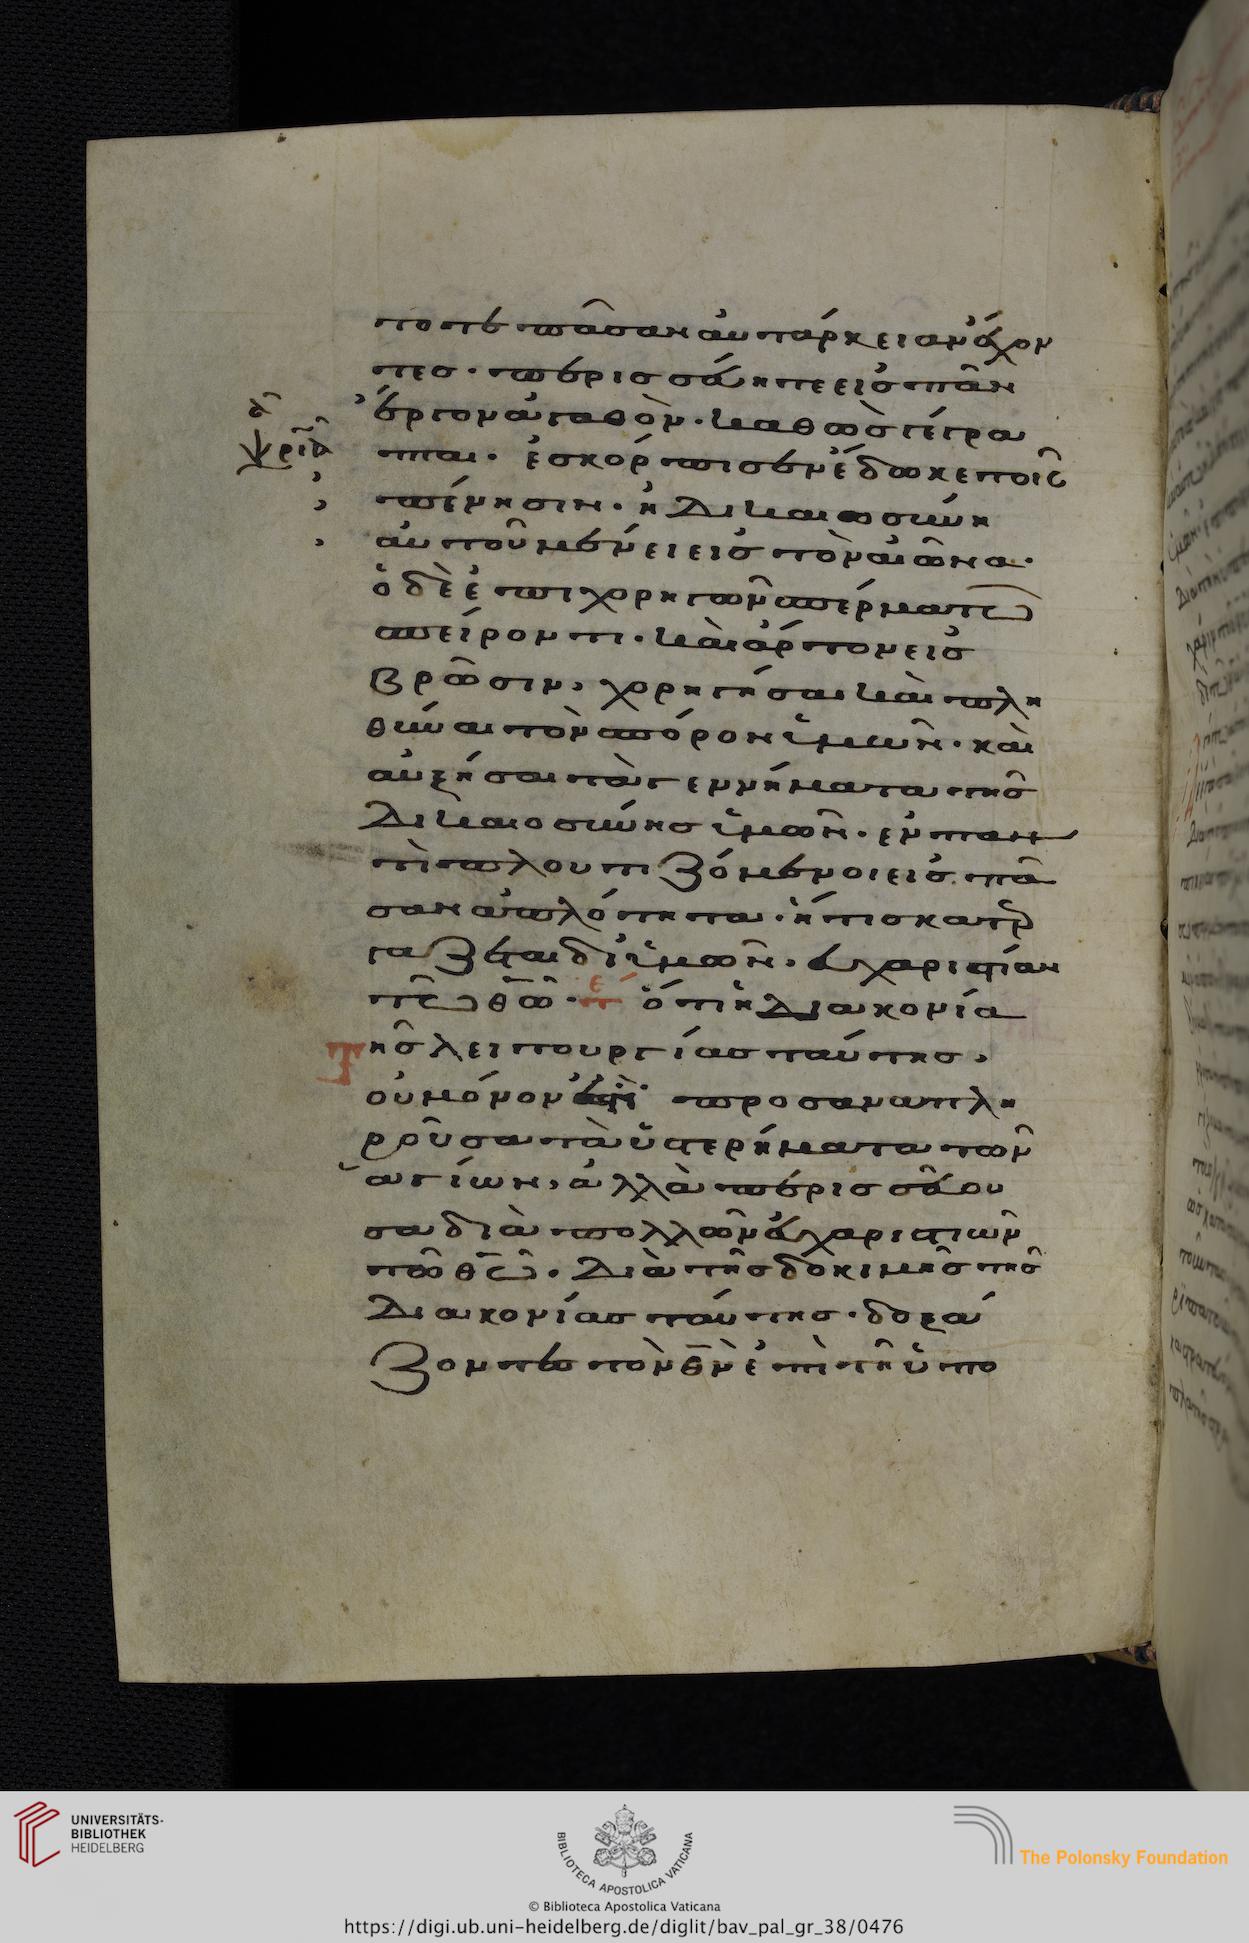 ποτε πᾶσαν αὐτάρκειαν ἔχον
τες· περισσεύητε εἰς πᾶν
ἔργον ἀγαθὸν· καθὼς γέγρα
πται· ἐσκόρπισεν ἔδωκε τοῖς
πένησιν· ἡ δικαιωσύνη
αὐτοῦ μένει εἰς τὸν αἰῶνα·
ὁ δὲ ἐπιχορηγῶν σπέρμα τῶ
σπείροντι· καὶ ἄρτον εἰς
βρῶσιν, χορηγήσαι καὶ πλη
θύναι τὸν σπόρον ὑμῶν· καὶ
αὐξήσαι τὰ γεννήματα τῆς
δικαιοσύνης ὑμῶν· ἐν παν
τὶ πλουτιζόμενοι εἰς πᾶ
σαν ἁπλότητα· ἥτις κατερ
γάζεται δι' ὑμῶν· εὐχαριστίαν
τῶ θῶ· τέ ὅτι ἡ διακονία
τῆς λειτουργίας ταύτης,
οὐ μόνον ἐστὶ προσαναπλη
ροῦσα τὰ ὑστερήματα τῶν
ἁγίων, ἀλλὰ περισσεύου
σα διὰ πολλῶν εὐχαριστιῶν
τῶ θῶ· διὰ τῆς δοκιμῆς τῆς
διακονίας ταύτης· δοξά
ζοντες τὸν θν ἐπὶ τῆ ὑπο
UNIVERSITÄTS-
BIBLIOTHEK
HEIDELBERG
BIBLIOTECA APOSTOLICA VATICANA
The Polonsky Foundation
© Biblioteca Apostolica Vaticana
https://digi.ub.uni-heidelberg.de/diglit/bav_pal_gr_38/0476